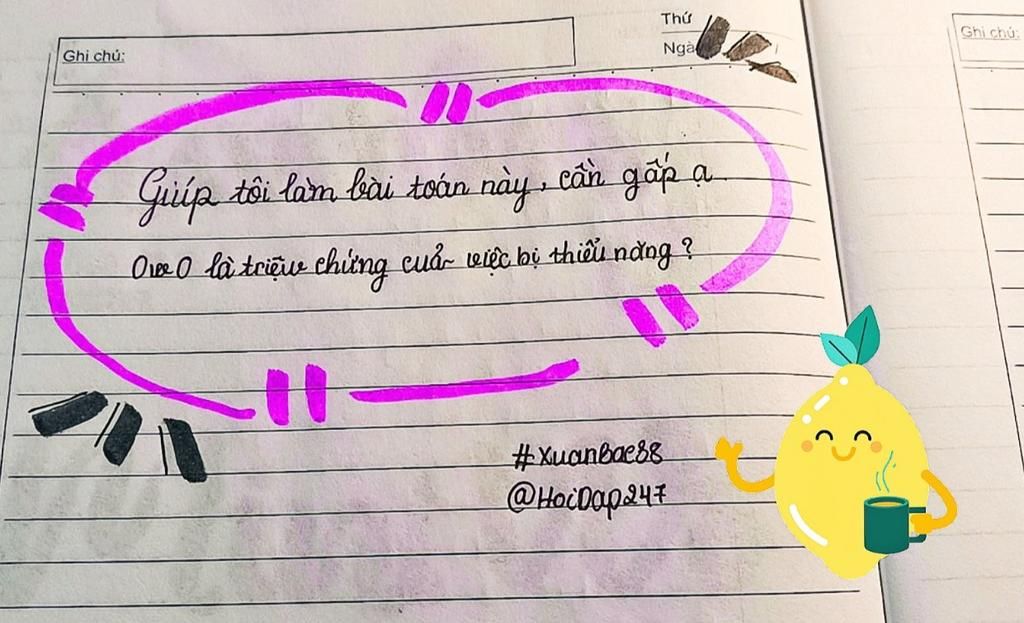 Thứ
Ghi chú:
Ngà
Ghi chú:
Giúp tôi làm bài toán này, cần gấp ạ
OwO là triệu chứng cuả việc bị thiểu năng?
#XuanBae88
@HoiDap247